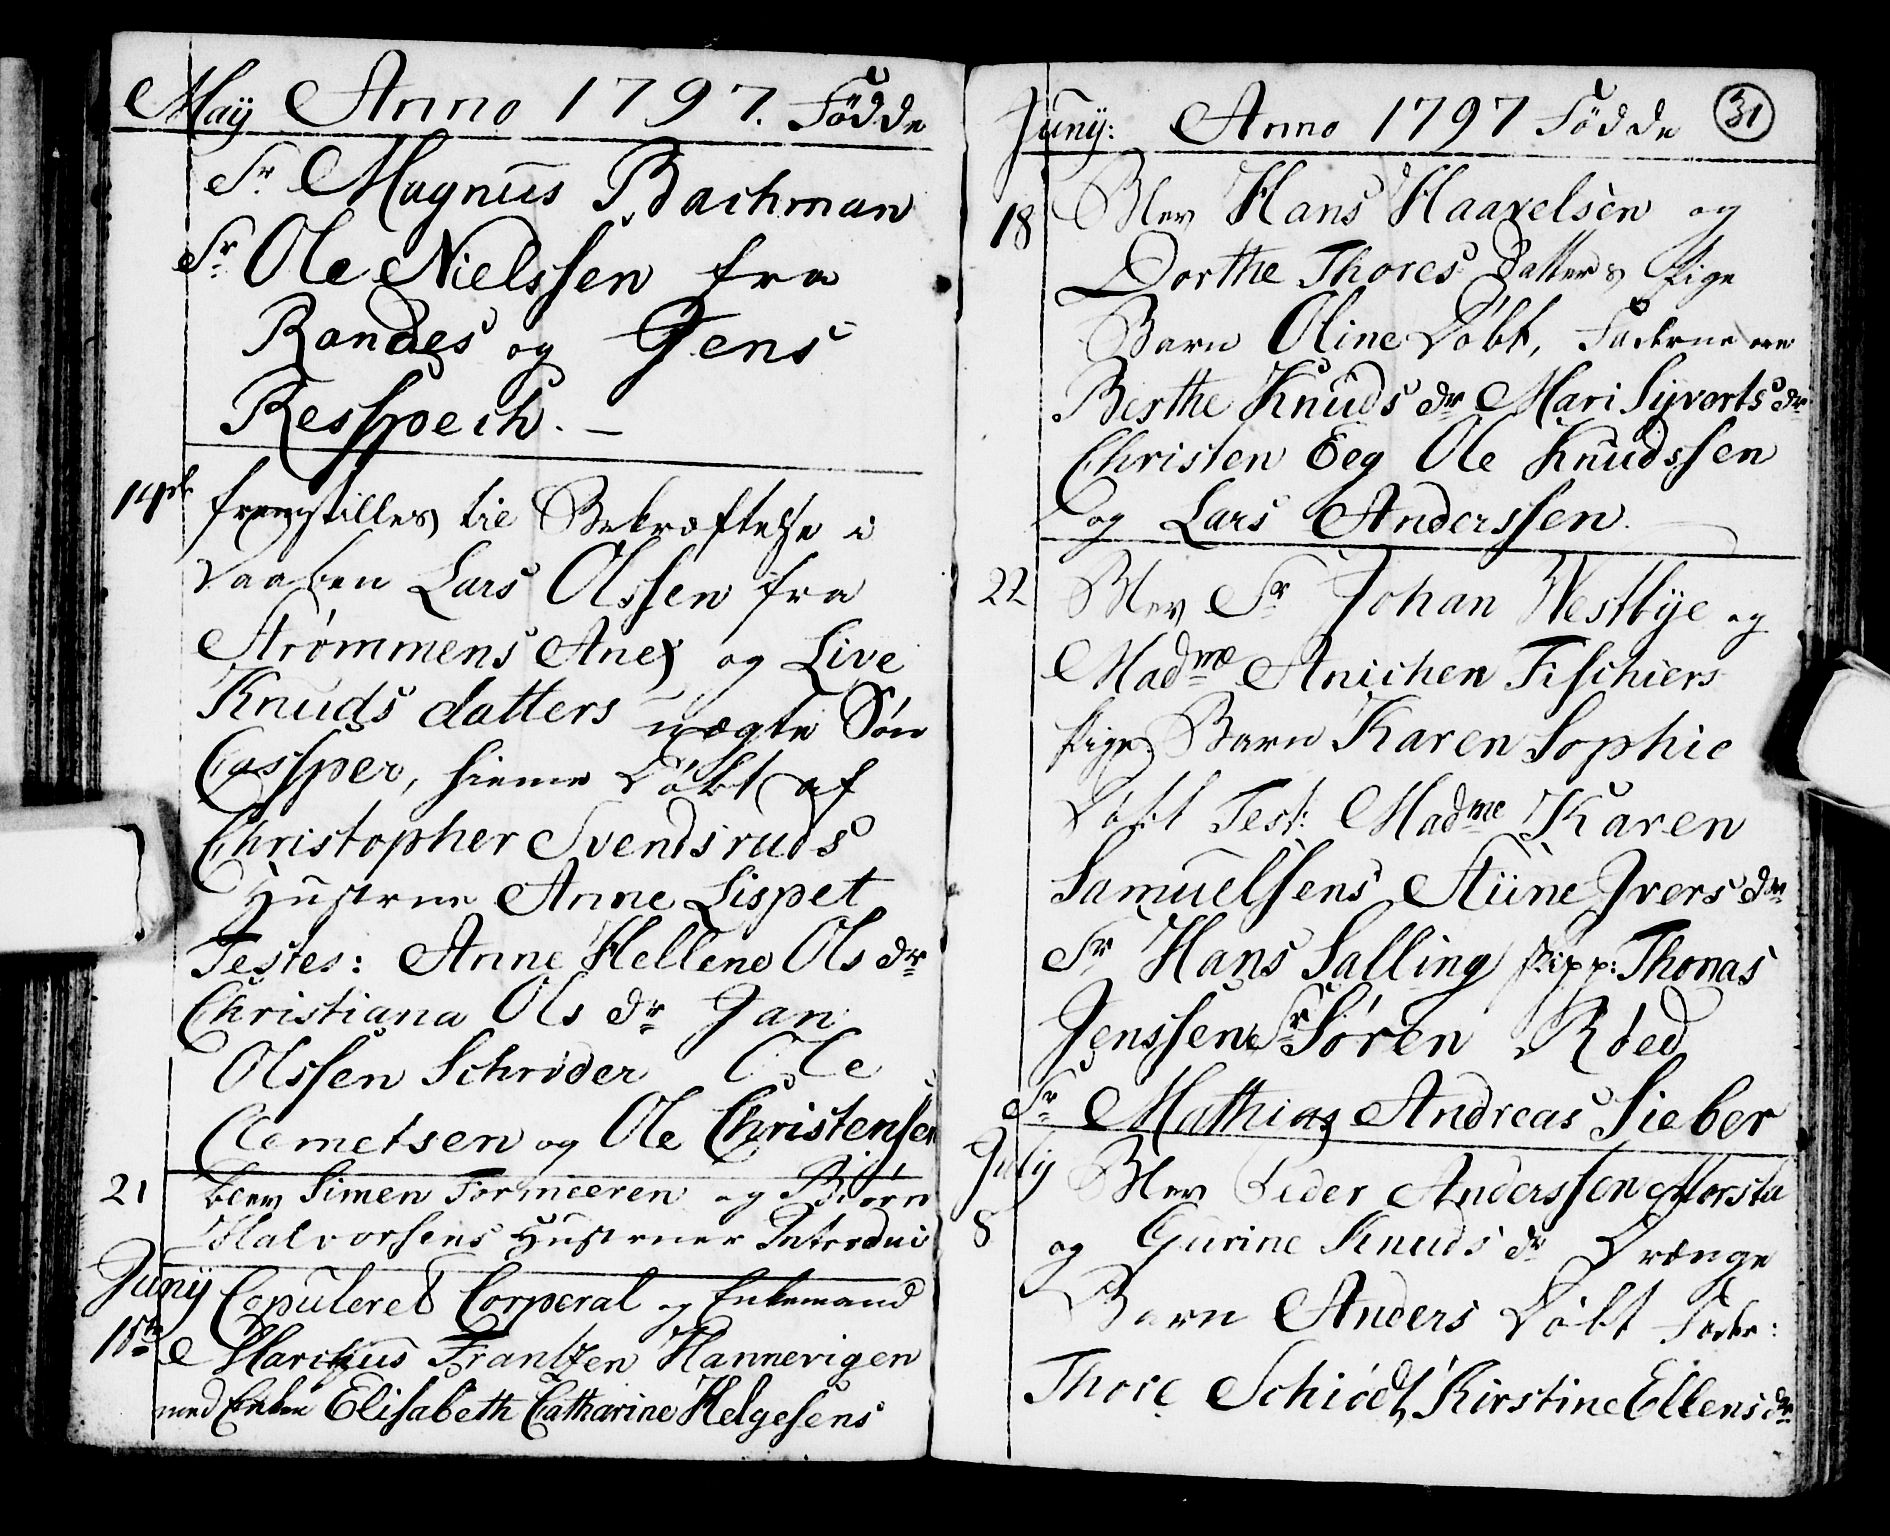 Maÿ Anno 1797. Födde
Sr. Magnus Bachman
Sr. Ole Nielssen fra
Randes og Jens
Resspech. —
14de fremstilles til Bekræftelse i
Daaben Lars Olssen fra
Strømmens Anex og Live
Knuds datters uægte Søn
Cassper, hieme Døbt af
Christopher Svendsruds
Hustrue Anne Lispet
Testes: Anne Hellene Ols dr.
Christiana Ols dr. Jan
Olssen Schrøder Ole
Clemetsen og Ole Christensen
21 blev Simen Formeeren og Biørn
Halvorsens Hustruer Introdui
Junÿ Copuleret Corperal og Enkemand
15de Frantzen Hannevigen
med Enken Elisabeth Catharine Helgesens
Junÿ: Anno 1797 Födde 31
18 Blev Hans Haavelsen og
Dorthe Thores Datters Pige
Barn Oline Døbt, Faderne ere
Berthe Knuds dr. Mari Syverts dr.
Christen Eeg Ole Knudssen
og Lars Anderssen.
22 Blev Sr. Johan Westbÿe og
Madme Anichen Fischiers
Pige Barn Karen Sophie
Døbt Test: Madme Karen
Samuelsens Stine Ivers dr.
Sr. Hans Salling Skipp: Thomas
Jenssen Sr. Søren Røed
Sr. Mathias Andreas Sieber
July Blev Peder Anderssen Morsta
8 og Gurine Knuds dr. Drænge
Barn Anders Døbt Fadr:
Thore Schiødt, Kirstine Ellens dr.